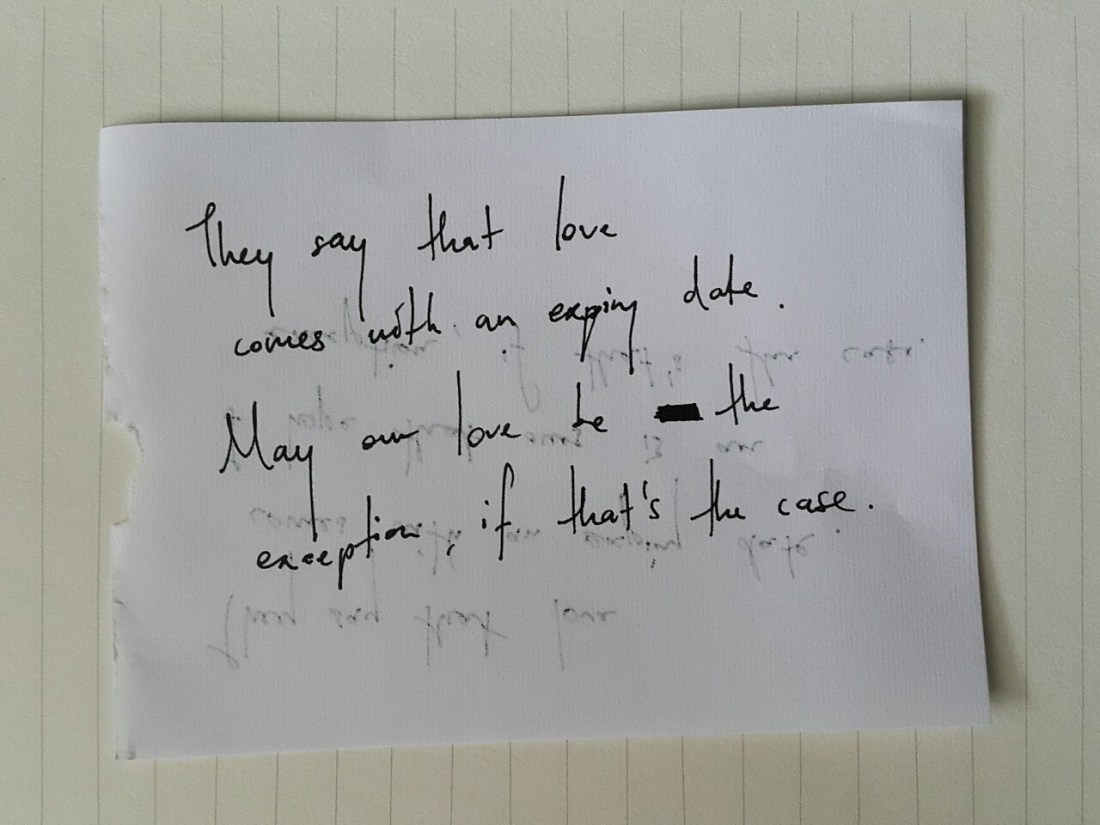 They say that love
comes with an expiry date.
May our love be the
exception, if that's the case.